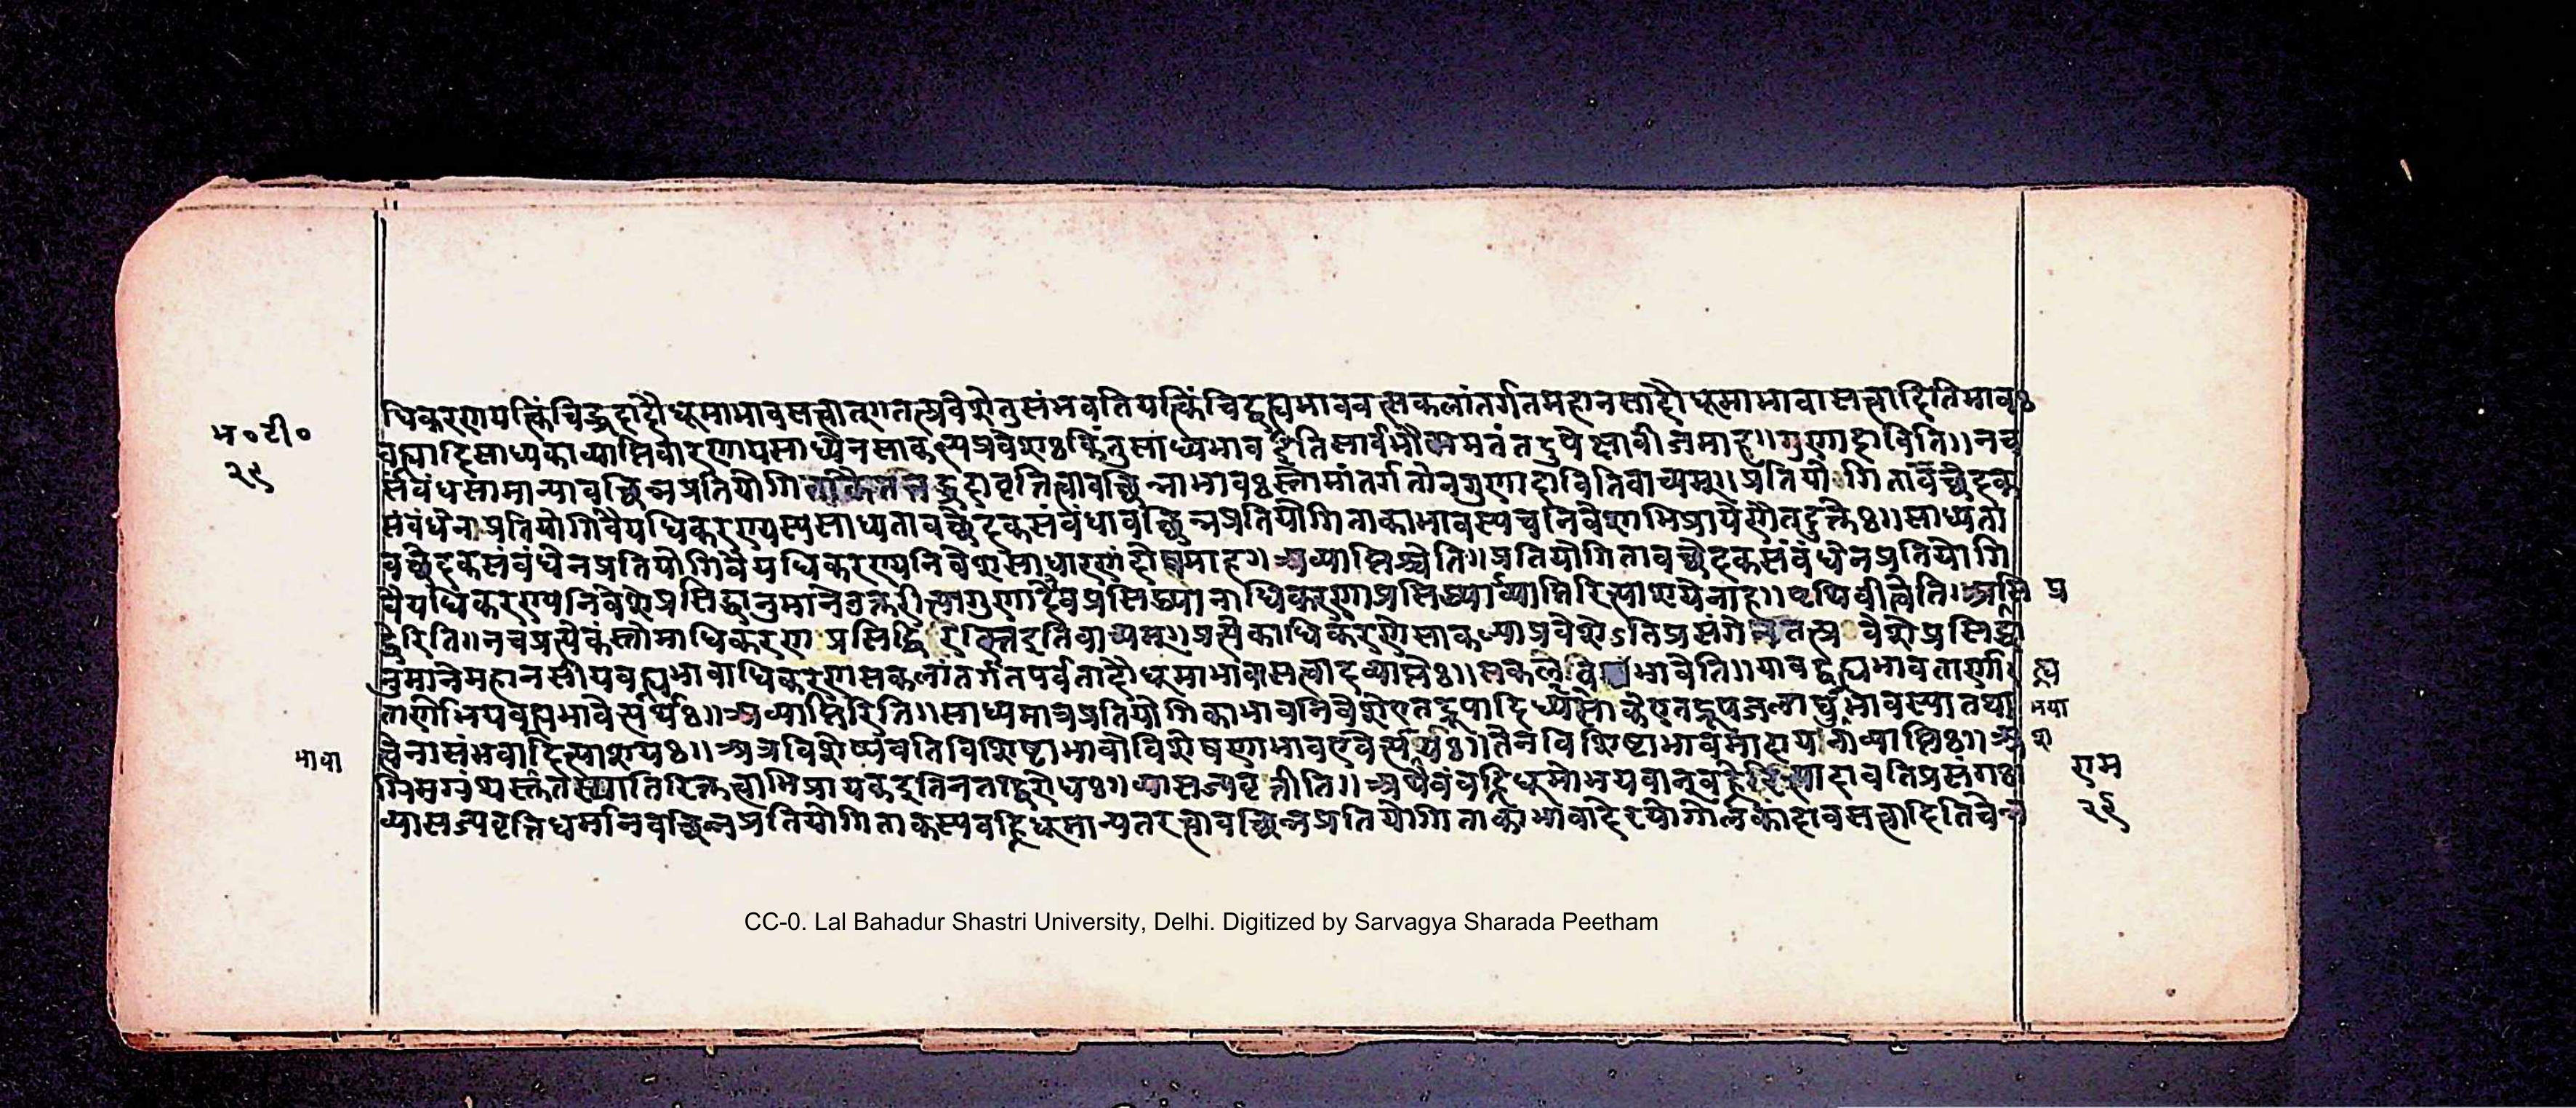 म॰टी॰
२९
धिकरणयत्किंचिद्ध्रदादौधूमाभावसत्त्वात्गतत्प्रवेशेतुसंभवतियत्किंचिद्वह्न्यभाववत्सकलांतर्गतमहानसादौधूमाभावासत्त्वादितिभावः
घुत्वादिसाध्यकाव्याप्तिवारणायसाध्येनसाकल्यप्रवेशःकिंतुसाध्यभावइतिसार्वभौममतंतदुपेक्षाबीजमाह॥गुणादाविति॥नच
सर्वंधसामान्यावच्छिन्नप्रतियोगि ध्रदावृत्तित्वावच्छिन्नाभावःस्तोमांतर्गतोनगुणादावितिवाच्यम्॥प्रतियोगितावच्छेदक
संबंधेनाप्रतियोगिवैयधिकरण्यस्यसाध्यतावच्छेदकसंबंधावच्छिन्नप्रतियोगिताकाभावस्यचनिवेशाभिप्रायेणैतदुक्तेः॥साध्यता
वच्छेदकसंबंधेनप्रतियोगिवैयधिकरण्यनिवेशसाधारणंदोषमाह॥अव्याप्तिश्चेति॥प्रतियोगितावच्छेदकसंबंधेनप्रतियोगि
वैयधिकरण्यनिवेशेप्रसिद्धानुमानेउक्तरीत्यागुणादेवप्रसिद्ध्यानाधिकरणाप्रसिद्ध्याव्याप्तिरित्याशयेनाह॥पृथिवीत्वेति॥अप्रसि प्र
द्धेरिति॥नचप्रत्येकंस्तोमाधिकरण प्रसिद्धि वाच्यम्॥प्रत्येकाधिकरणेसाकल्याप्रवेशेऽतिप्रसंगे तत्प्रवेशेप्रसिद्धा
नुमानेमहानसीयवह्न्यभावाधिकरणसकलांतर्गतपर्वतादौधूमाभावासत्त्वादव्याप्तेः॥सकले भावेति॥यावद्वह्न्यभावताणी त्व
तार्णोभयवह्न्यभावेत्यर्थः॥अव्याप्तिरिति॥साध्यमात्रप्रतियोगिकाभावनिवेशेएतद्रूपादि एतद्रूप भावस्यातथा भया
भावा त्वेनासंभवादित्याशयः॥अत्रविशेष्यवतिविशिष्टाभावोविशेषणाभावएवेत्यर्थः॥तेनविशिष्टाभावमादाय नाव्याप्तिः॥
ग्रिमग्रंथस्तंतस्यातिरिक्तत्वाभिप्रायकइतिनतद्विरोधः॥व्यासज्यवृत्तीति॥अथैवंवह्निधूमोभयवान्वह्ने दावतिप्रसंगः राम
व्यासज्यवृत्तिधर्मानवच्छिन्नप्रतियोगिताकस्यवह्निधूमान्यतरत्वावच्छिन्नप्रतियोगिताकाभावादेरयोगोलकादावसत्त्वादितिचेन्न २९
CC-0. Lal Bahadur Shastri University, Delhi. Digitized by Sarvagya Sharada Peetham